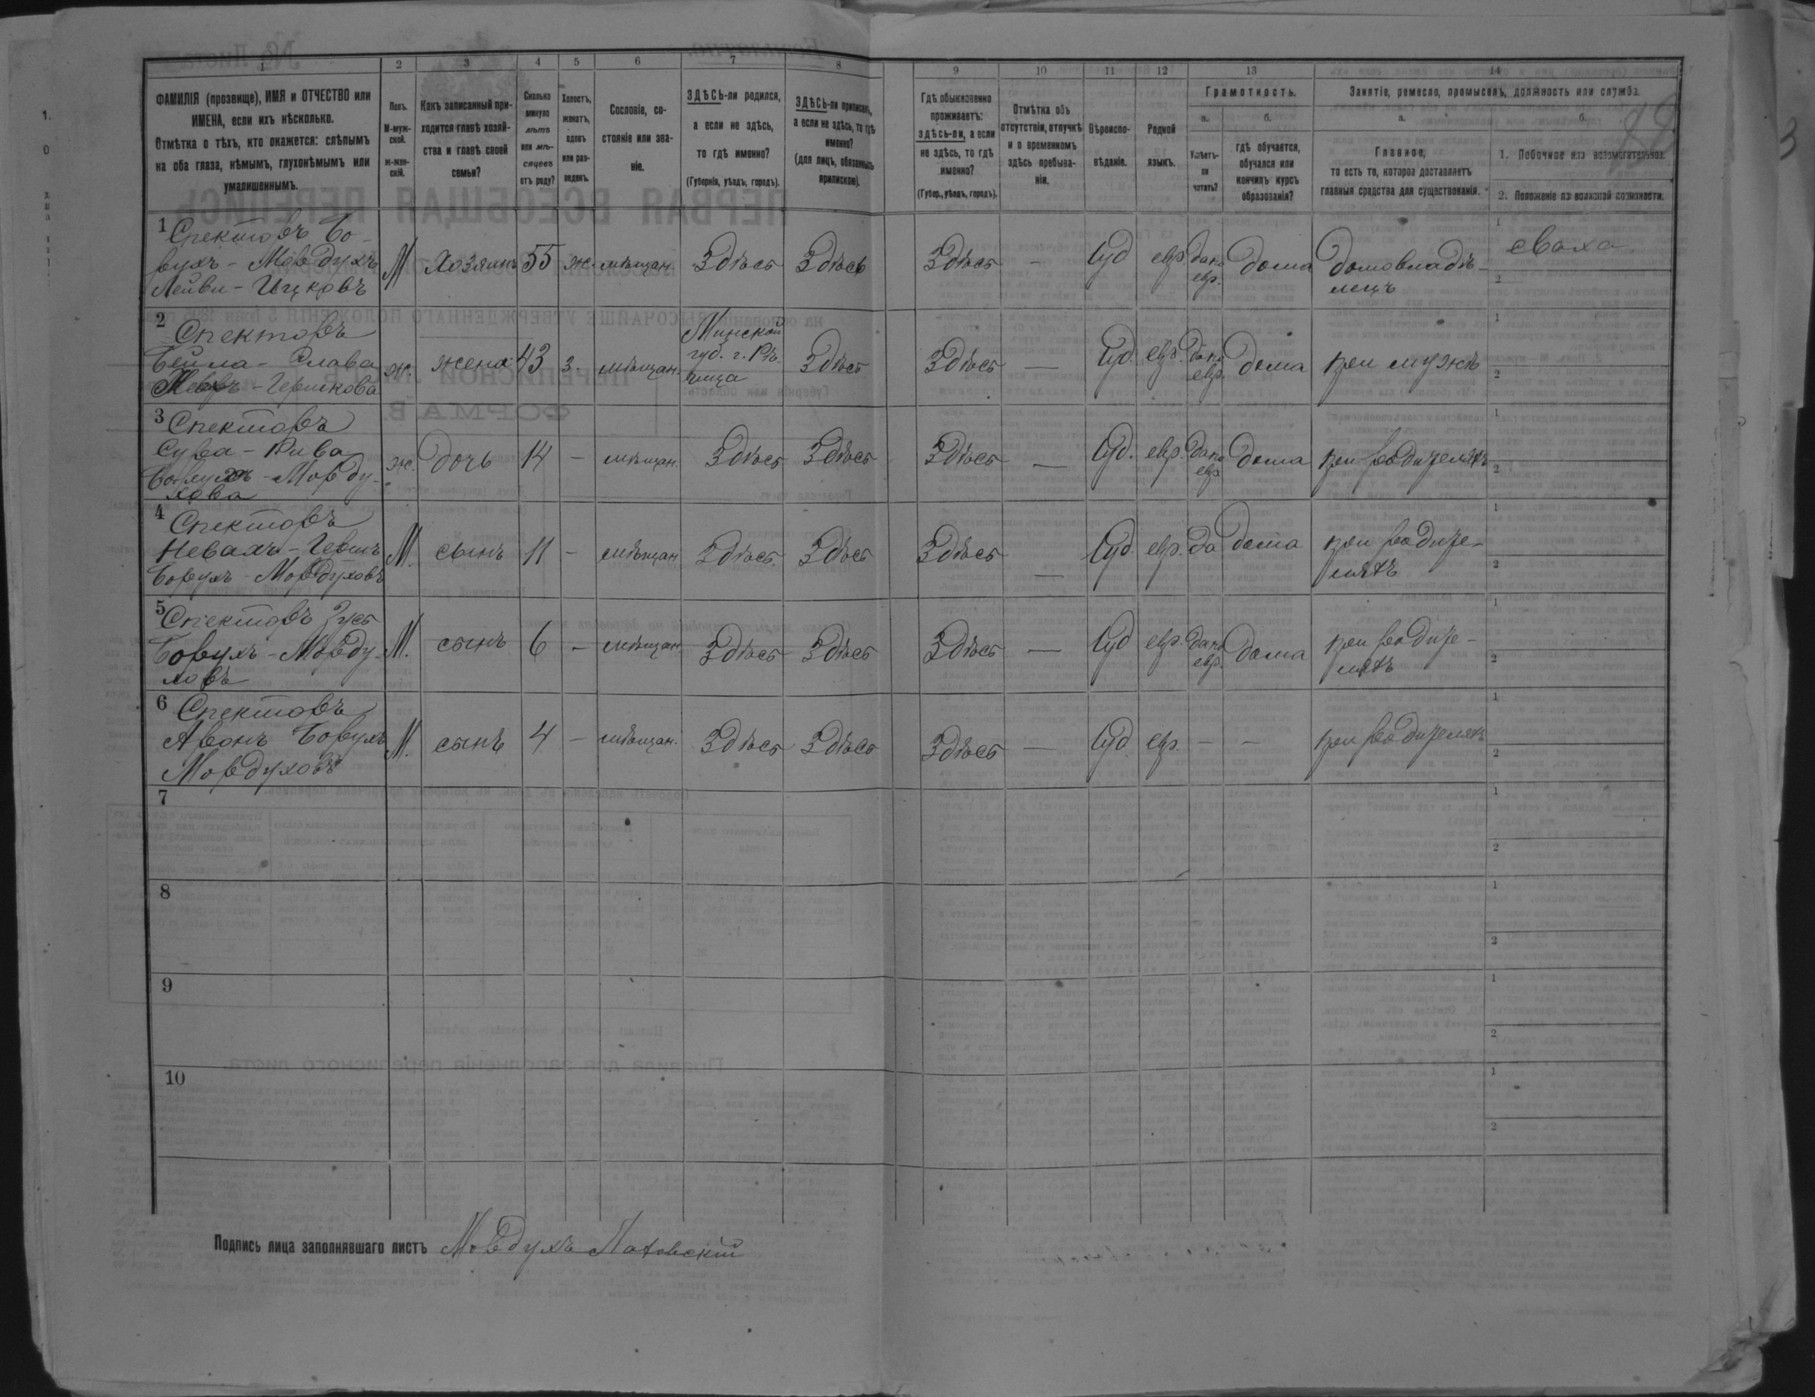 1 2 3 4 5 6 7 8 9 10 11 12 13 14
ФАМИЛІЯ (прозвище), ИМЯ и ОТЧЕСТВО или ИМЕНА, если ихъ нѣсколько.
Отмѣтка о тѣхъ, кто окажется: слѣпымъ на оба глаза, нѣмымъ, глухонѣмымъ или умалишеннымъ.
Полъ.
М-мужской.
ж-женскій.
Какъ записанный приходится главѣ хозяйства и главѣ своей семьи?
Сколько минуло лѣтъ или мѣсяцевъ отъ роду?
Холостъ, женатъ, вдовъ или разведенъ.
Сословіе, состояніе или званіе.
ЗДѢСЬ-ли родился, а если не здѣсь, то гдѣ именно?
(Губернія, уѣздъ, городъ).
ЗДѢСЬ-ли приписанъ, а если не здѣсь, то гдѣ именно?
(для лицъ, обязанныхъ припискою).
Гдѣ обыкновенно проживаетъ: здѣсь-ли, а если не здѣсь, то гдѣ именно?
(Губер., уѣздъ, городъ).
Отмѣтка объ отсутствіи, отлучкѣ и о временномъ здѣсь пребываніи.
Вѣроисповѣданіе.
Родной языкъ.
Грамотность.
а.
Умѣетъ-ли читать?
б.
гдѣ обучается, обучался или кончилъ курсъ образованія?
Занятіе, ремесло, промыселъ, должность или служба.
а.
Главное,
то есть то, которое доставляетъ главныя средства для существованія.
б.
1. Побочное или вспомогательное.
2. Положеніе по воинской повинности.
1 Спекторъ Бо-
рухъ - Мордухъ
Лейви - Ицковъ
М Хозяинъ 55 ж. мѣщан. Здѣсь Здѣсь Здѣсь — Іуд евр да по евр. дома домовладѣ-
лецъ
2 Спекторъ
Бейла - Слава
Гершкова
ж. жена 43 з. мѣщан. Минской
губ. г. Рѣ-
чица
Здѣсь Здѣсь — Іуд. евр. да по евр. дома при мужѣ
3 Спекторъ
Рива
Борухъ - Морду-
хова
ж. дочь 14 — мѣщан. Здѣсь Здѣсь Здѣсь — Іуд. евр. да по евр дома при родителяхъ
4 Спекторъ
Борухъ - Мордуховъ
М. сынъ 11 — мѣщан Здѣсь. Здѣсь Здѣсь — Іуд евр. да дома при родите-
ляхъ
5 Спекторъ Зусь
Борухъ - Морду-
ховъ
М. сынъ 6 — мѣщан Здѣсь Здѣсь Здѣсь — Іуд евр. да по евр. дома при родите-
ляхъ
6 Спекторъ
Аронъ Борухъ
Мордуховъ
М. сынъ 4 — мѣщан. Здѣсь Здѣсь Здѣсь — Іуд евр. — — при родителяхъ
7
8
9
10
Подпись лица заполнявшаго листъ Мордухъ